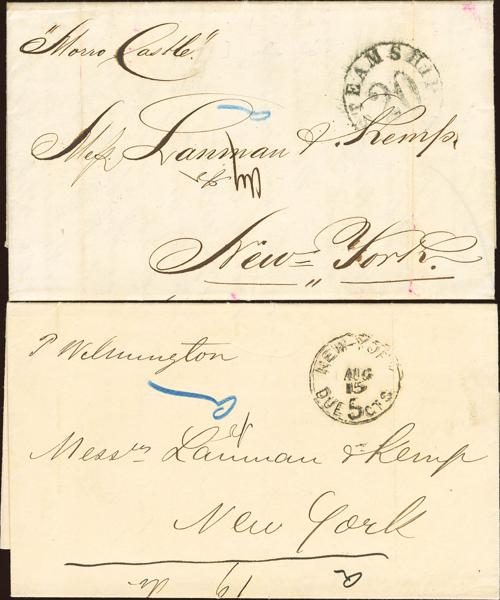 "Morro Castle."
STEAMSHIP
20
Mess. Lanman & Kemp.
New York.
P Wilmington
NEW YORK
AUG
15
DUE 5 CTS
Messrs Lanman & Kemp
New York